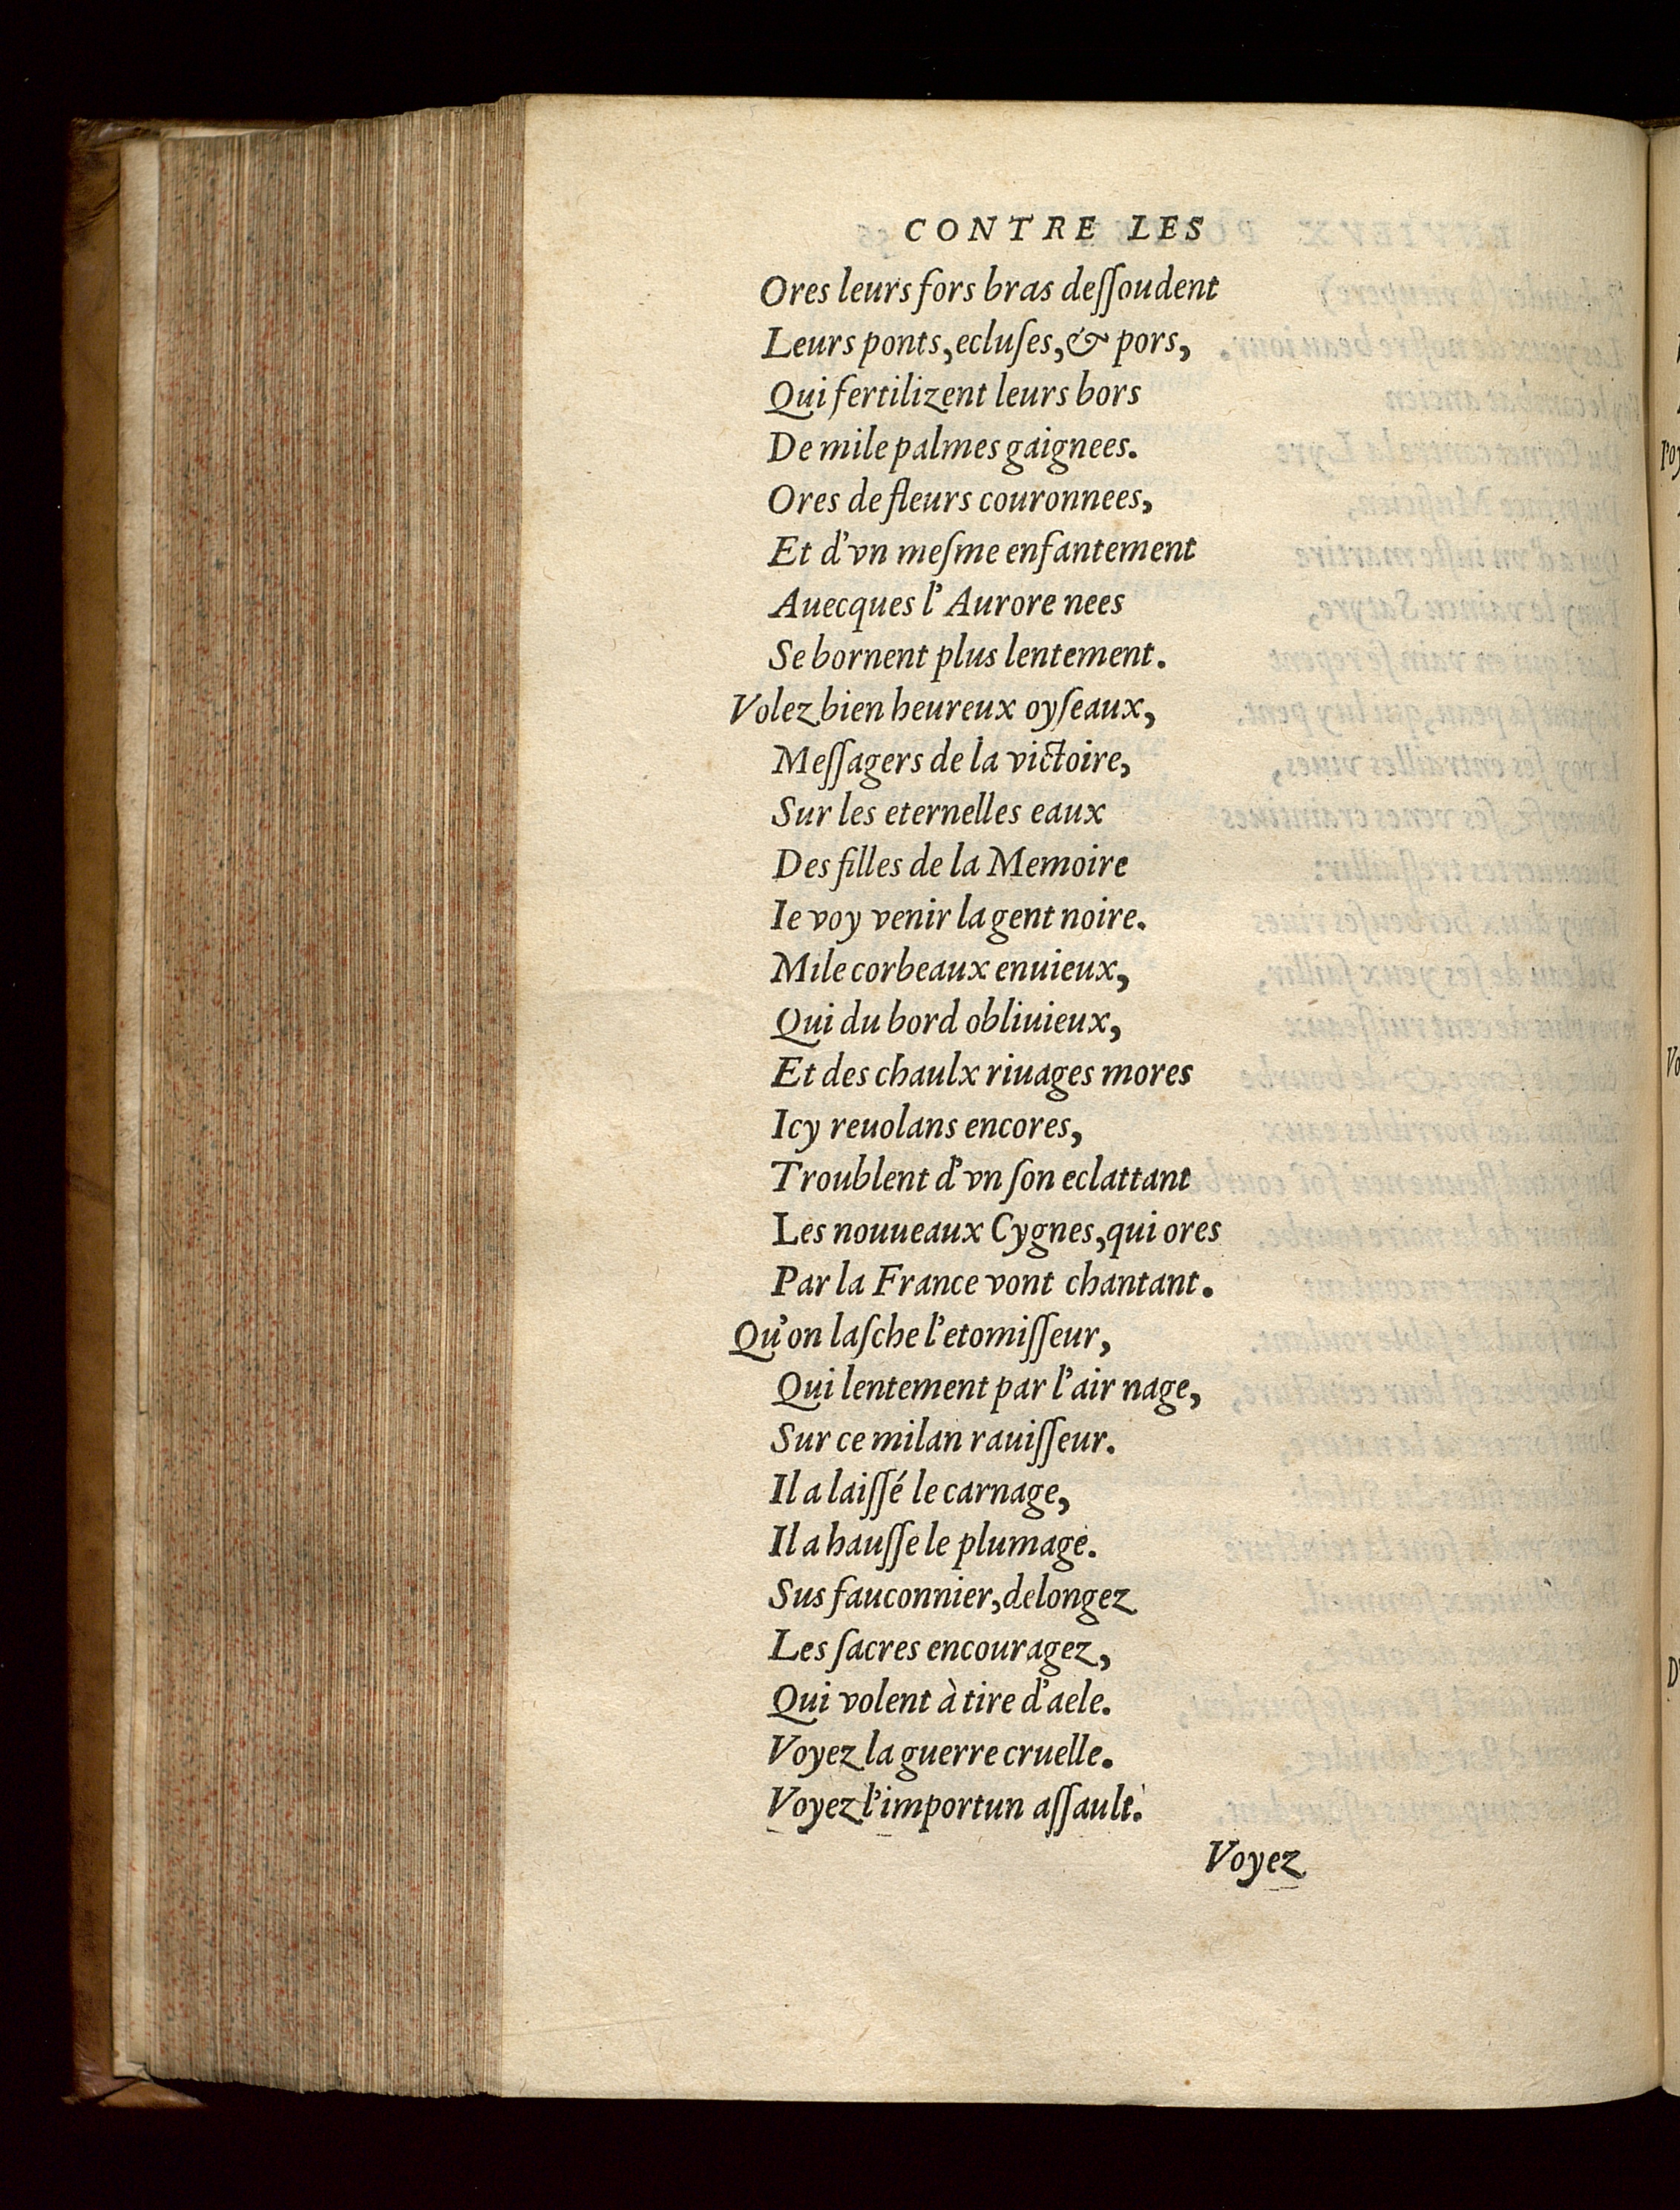 CONTRE LES
Ores leurs fors bras deſſoudent
Leurs ponts, ecluſes, & pors,
Qui fertilizent leurs bors
De mile palmes gaignees.
Ores de fleurs couronnees,
Et d'vn meſme enfantement
Auecques l'Aurore nees
Se bornent plus lentement.
Volez bien heureux oyſeaux,
Meſſagers de la victoire,
Sur les eternelles eaux
Des filles de la Memoire
Ie voy venir la gent noire.
Mile corbeaux enuieux,
Qui du bord obliuieux,
Et des chaulx riuages mores
Icy reuolans encores,
Troublent d'vn ſon eclattant
Les nouueaux Cygnes, qui ores
Par la France vont chantant.
Qu'on laſche l'etomiſſeur,
Qui lentement par l'air nage,
Sur ce milan rauiſſeur.
Il a laiſſé le carnage,
Il a hauſſe le plumage.
Sus fauconnier, delongez
Les ſacres encouragez,
Qui volent à tire d'aele.
Voyez la guerre cruelle.
Voyez l'importun aſſault.
Voyez